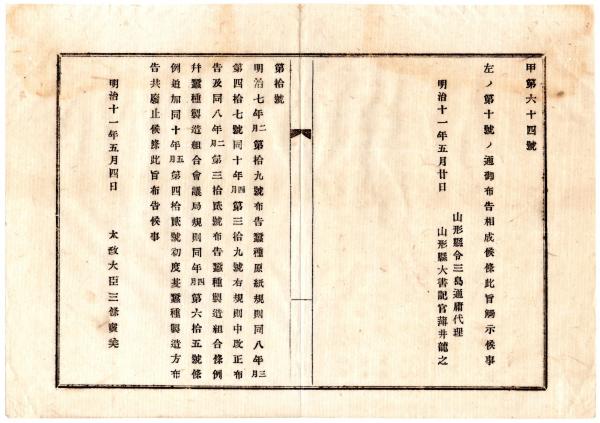 甲第六十四號
左ノ第十號ノ通御布告相成候條此旨觸示候事
山形縣令三島通庸代理
明治十一年五月廿日　山形縣大書記官薄井龍之
第拾號
明治七年二月第拾九號布告蠶種原紙規則同八年三月
第四拾七號同十年四月第三拾九號右規則中改正布
告及同八年二月第三拾貳號布告蠶種製造組合條例
幷蠶種製造組合會議局規則同年四月第六拾五號條
例追加同十年五月第四拾貳號初度某蠶種製造方布
告共廢止候條此旨布告候事
明治十一年五月四日　太政大臣三條實美